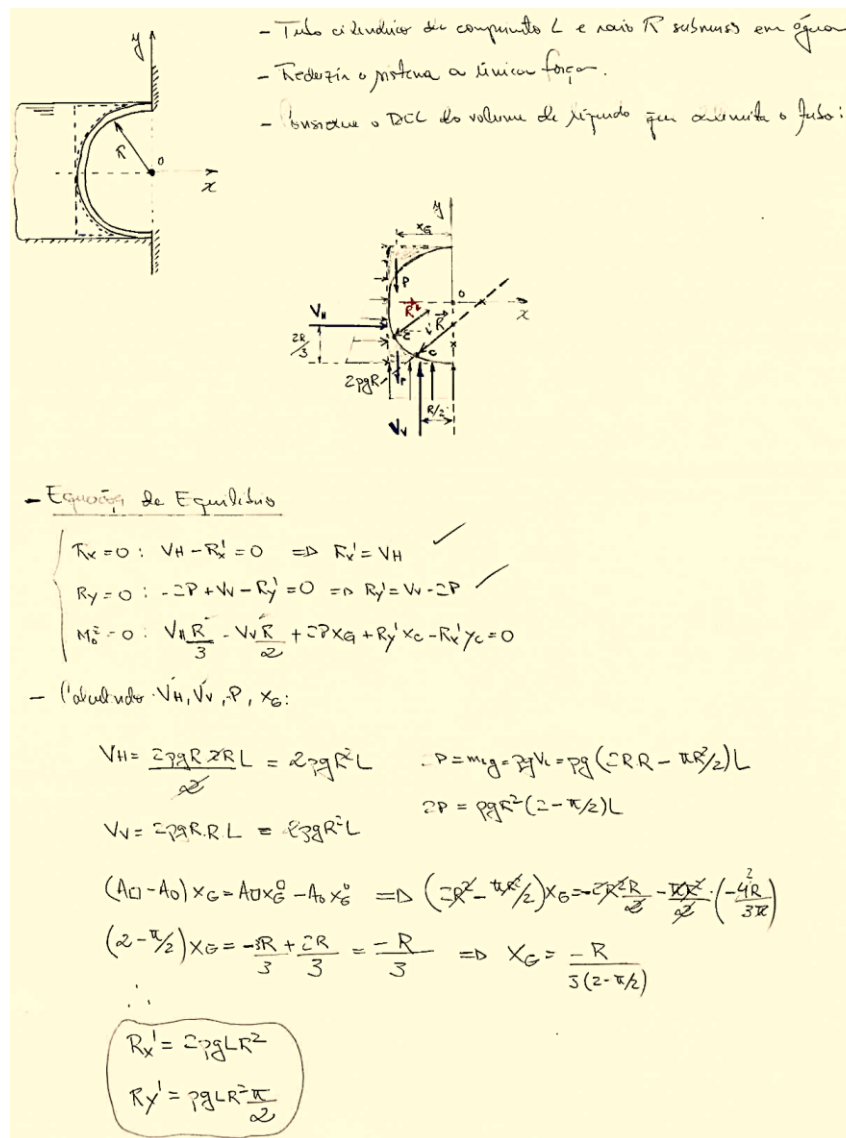 - Tubo cilíndrico de comprimento L e raio R submerso em água
- Reduzir o sistema a única força.
- Considere o DCL do volume de líquido que circunvizinha o tubo:
y
R
o
x
y
x_G
P
V_H
R'
o
x
R
2R/3
C
C
P
2ρgR
R/2
V_V
- Equações de Equilíbrio
R_x = 0 : V_H - R_x' = 0 => R_x' = V_H ✓
R_y = 0 : -2P + V_V - R_y' = 0 => R_y' = V_V - 2P ✓
M_o^z = 0 : V_H R/3 - V_V R/2 + 2P x_G + R_y' x_C - R_x' y_C = 0
- Calculando V_H, V_V, P, x_G:
V_H = 2ρgR 2R L / 2 = 2ρgR²L
2P = m_L g = ρgV_L = ρg(2R.R - πR²/2)L
V_V = 2ρgR.R.L = 2ρgR²L
2P = ρgR²(2 - π/2)L
(A□ - A_o) x_G = A□ x_G^□ - A_o x_G^o => (2R² - πR²/2) x_G = -2R² R/2 - πR²/2 . (-4R/3π)
(2 - π/2) x_G = -3R/3 + 2R/3 = -R/3 => x_G = -R/3(2-π/2)
∴
R_x' = 2ρgLR²
R_y' = ρgLR² π/2